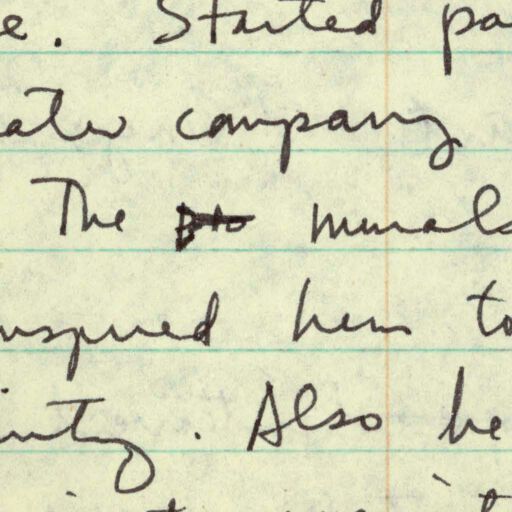 e. Started pa
ater company
The murals
nspired him to
inting. Also he